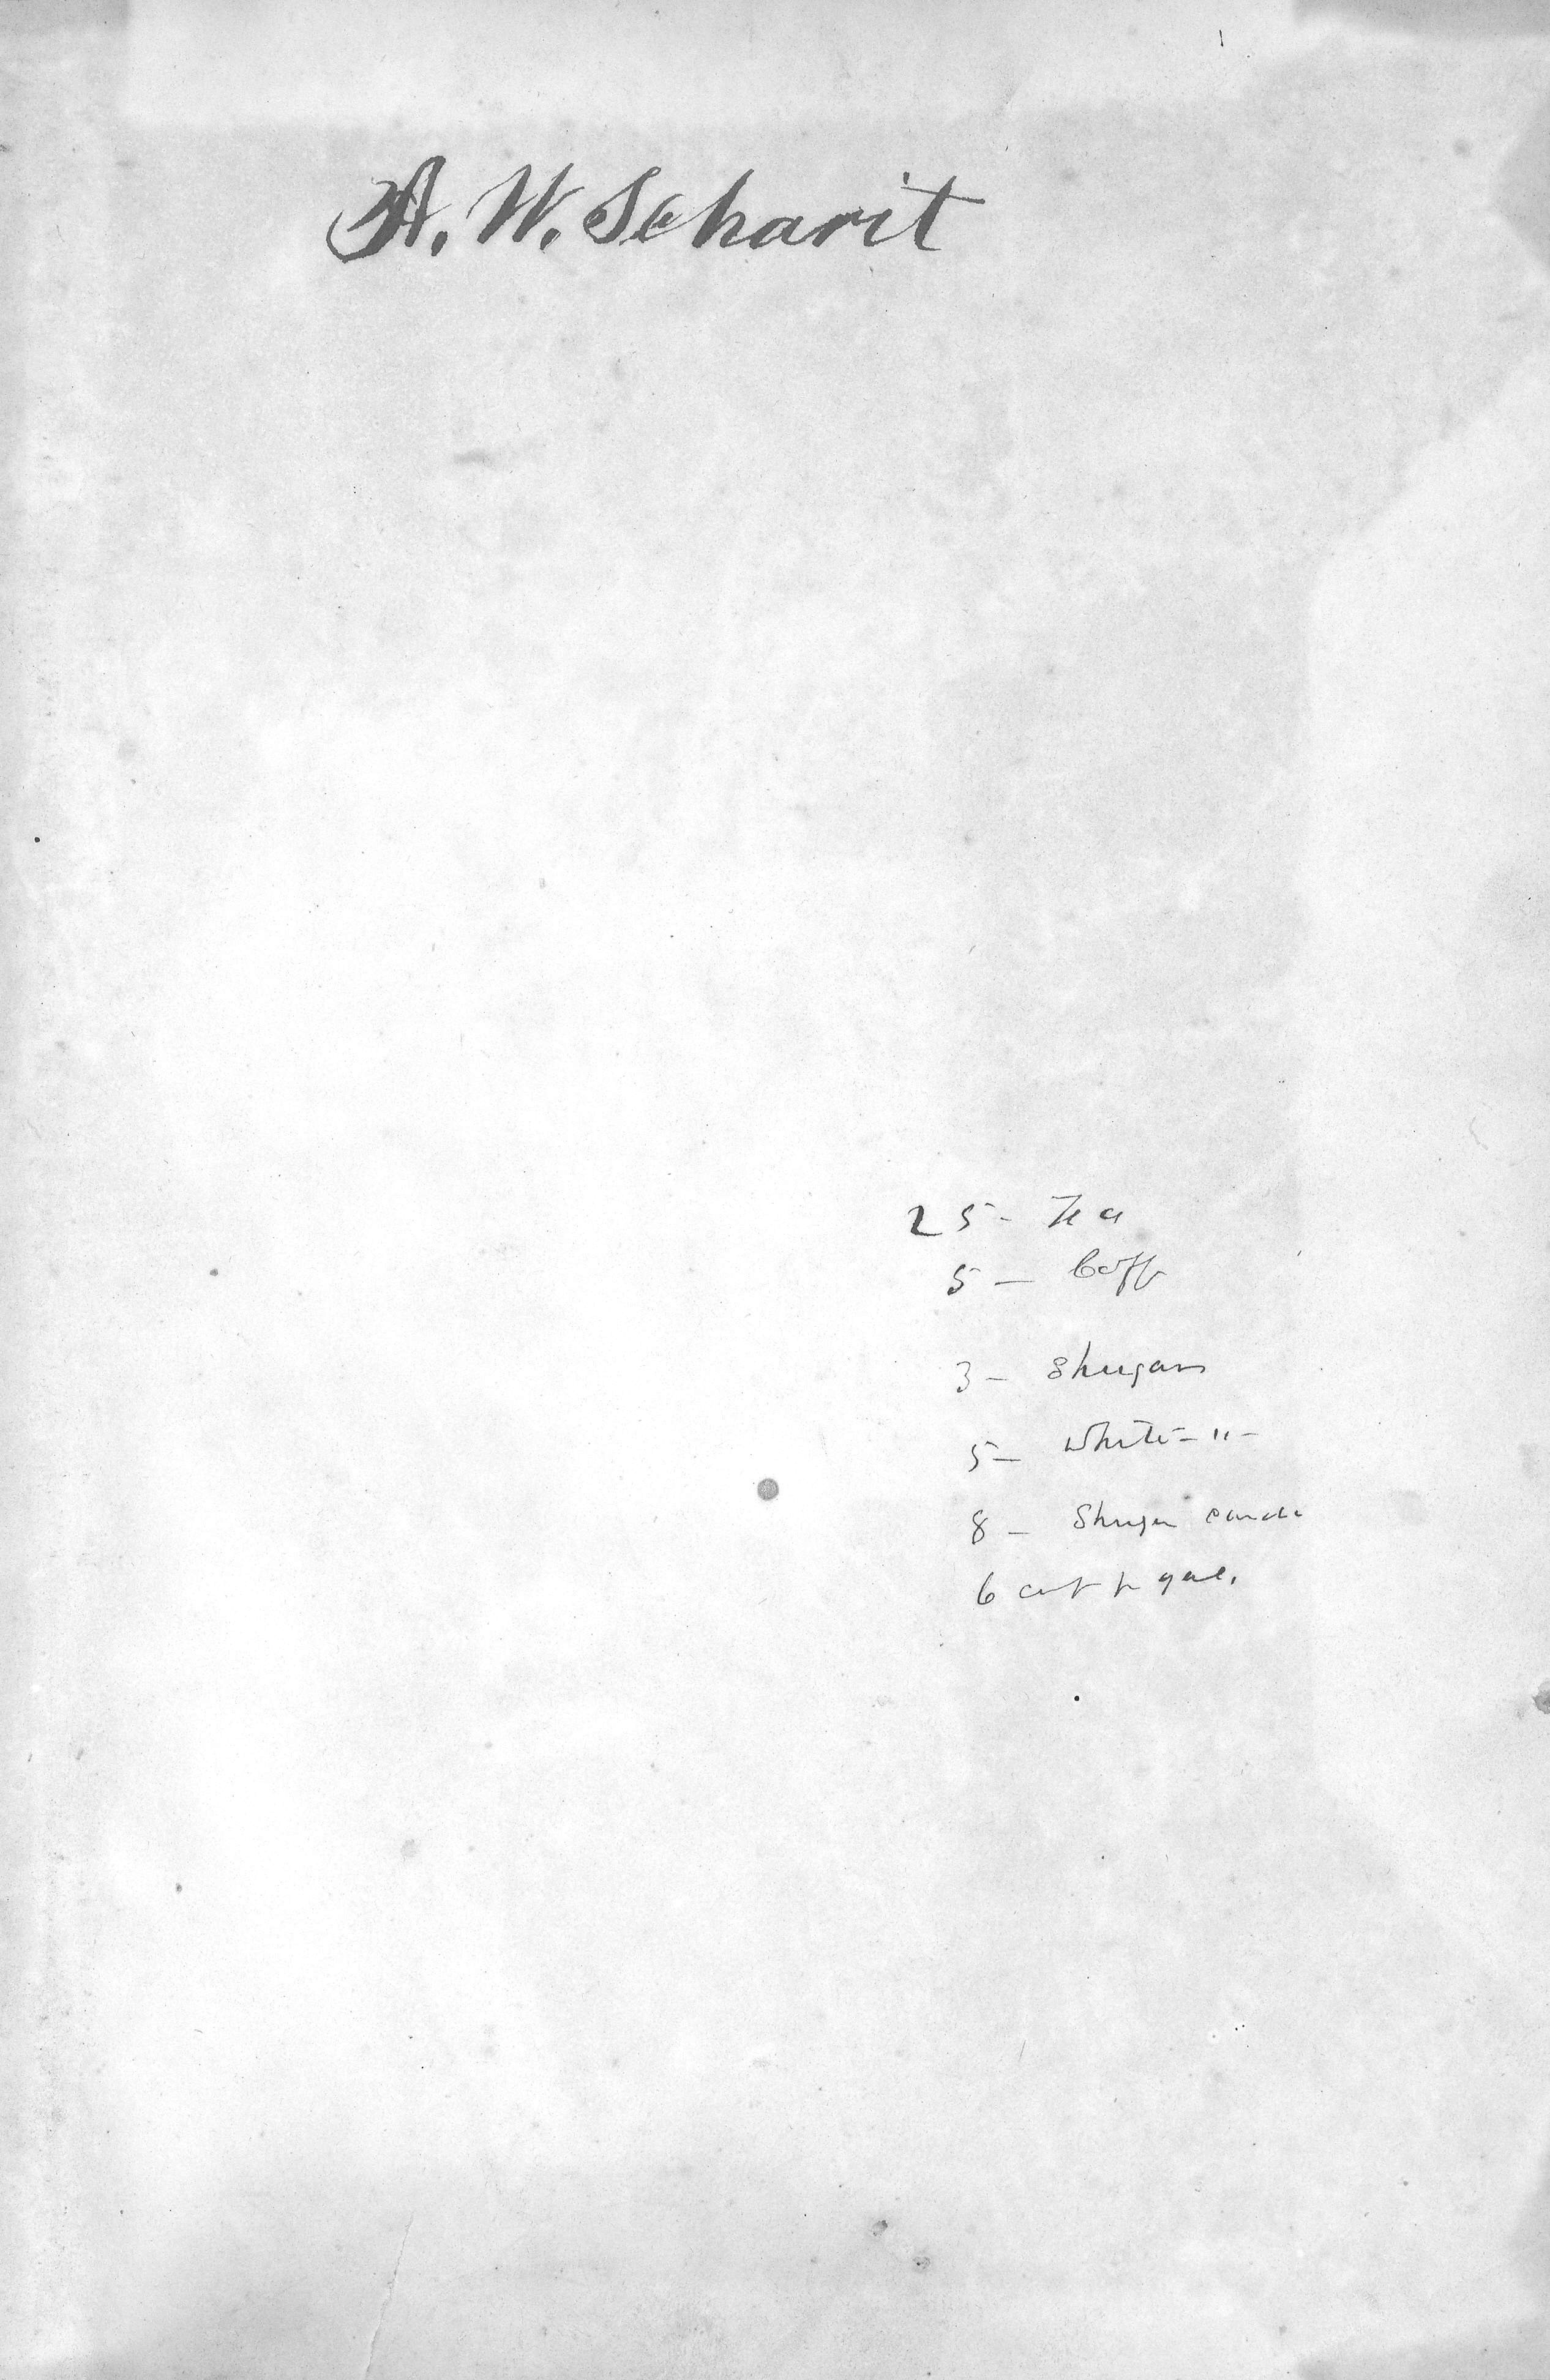 A. W. Scharit
25 - Tea
5 - Coff
3 - Shugar
5 - White - " -
8 - Shugar cand
6 per gal.